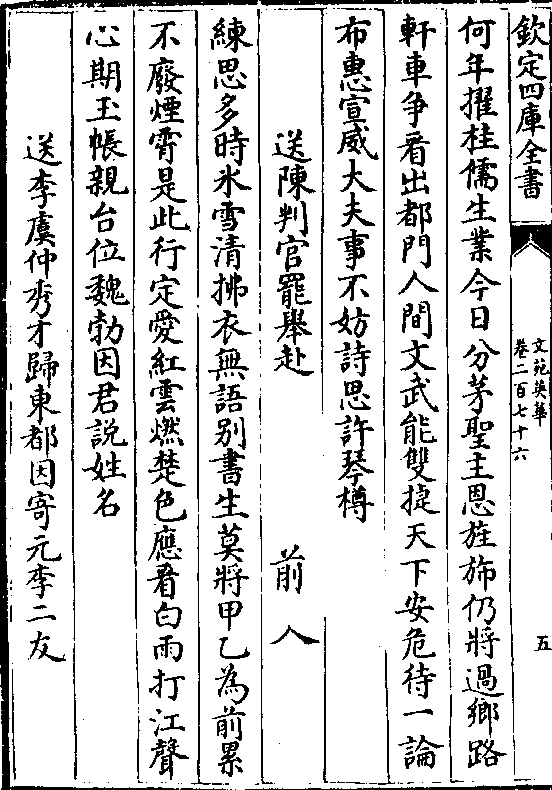 欽定四庫全書
文苑英華
卷二百七十六
五
何年擢桂儒生業今日分茅聖主恩旌斾仍將過鄉路
軒車争看出都門人間文武能雙捷天下安危待一論
布惠宣威大夫事不妨詩思許琴樽
送陳判官罷舉赴　　前人
練思多時氷雪清拂衣無語别書生莫將甲乙為前累
不廢煙霄是此行定愛紅雲燃楚色應看白雨打江聲
心期玉帳親台位魏勃因君說姓名
送李虞仲秀才歸東都因寄元李二友